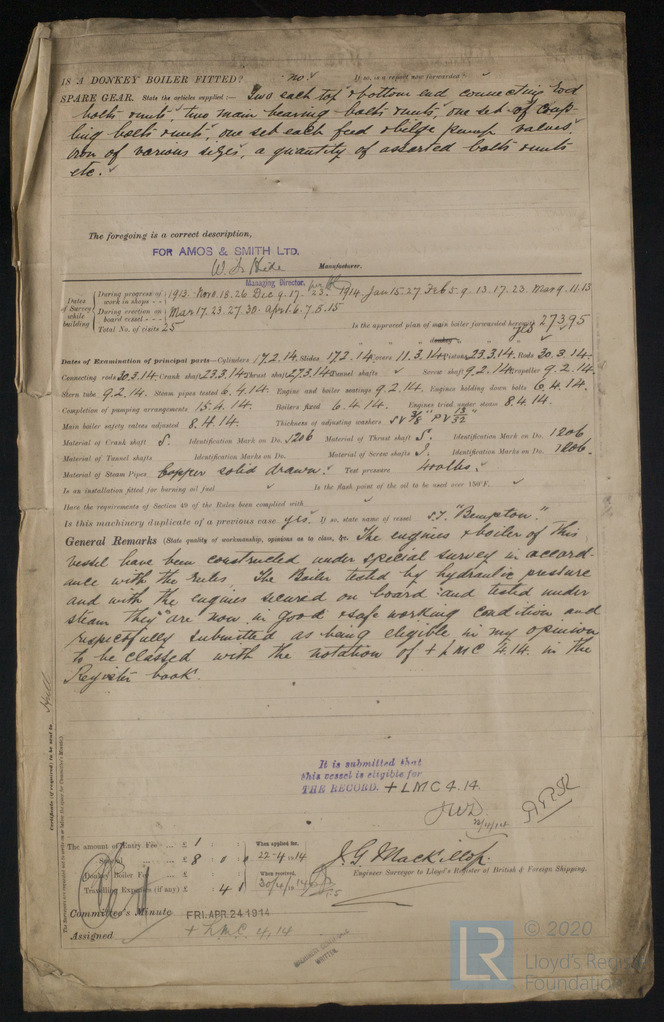 IS A DONKEY BOILER FITTED? no. If so, is a report now forwarded?
SPARE GEAR. State the articles supplied:— Two each top & bottom end connecting rod
bolts & nuts, two main bearing bolts & nuts, one set of coup-
ling bolts & nuts, one set each feed & bilge pump valves
iron of various sizes, a quantity of assorted bolts & nuts
etc.
The foregoing is a correct description,
FOR AMOS & SMITH LTD.
Manufacturer.
Managing Director.
Dates of Survey while building
During progress of work in shops - - 1913. Nov. 18. 26 Dec. 9. 17. 23. 1914. Jan 15. 27 Feb 5. 9. 13. 17. 23 Mar 9. 11. 13
During erection on board vessel - - - Mar 17. 23. 27. 30. April. 6. 7. 8. 15
Total No. of visits 25 Is the approved plan of main boiler forwarded herewith yes 27395
" " " donkey " " "
Dates of Examination of principal parts—Cylinders 17.2.14. Slides 17.2.14. Covers 11.3.14. Pistons 23.3.14. Rods 30.3.14.
Connecting rods 30.3.14. Crank shaft 23.3.14. Thrust shaft 27.3.14. Tunnel shafts Screw shaft 9.2.14. Propeller 9.2.14.
Stern tube 9.2.14. Steam pipes tested 6.4.14. Engine and boiler seatings 9.2.14. Engines holding down bolts 6.4.14.
Completion of pumping arrangements 15.4.14. Boilers fixed 6.4.14. Engines tried under steam 8.4.14.
Main boiler safety valves adjusted 8.4.14. Thickness of adjusting washers SV 3/8" PV 13/32"
Material of Crank shaft S. Identification Mark on Do. 1206 Material of Thrust shaft S. Identification Mark on Do. 1206
Material of Tunnel shafts Identification Marks on Do. Material of Screw shafts I. Identification Marks on Do. 1206.
Material of Steam Pipes Copper solid drawn. Test pressure 400 lbs.
Is an installation fitted for burning oil fuel Is the flash point of the oil to be used over 150°F.
Have the requirements of Section 49 of the Rules been complied with
Is this machinery duplicate of a previous case yes. If so, state name of vessel S.T. "Bempton".
General Remarks (State quality of workmanship, opinions as to class, &c. The engines & boiler of this
vessel have been constructed under special survey in accord-
ance with the rules. The Boiler tested by hydraulic pressure
and with the engines secured on board and tested under
steam they are now in good & safe working condition and
respectfully submitted as being eligible in my opinion
to be classed with the notation of + LMC 4.14. in the
Register book.
Certificate (if required) to be sent to Hull
It is submitted that
this vessel is eligible for
THE RECORD. + LMC 4.14.
The amount of Entry Fee ... £ 1
Special ... £ 8 0 0
Donkey Boiler Fee ... £
Travelling Expenses (if any) £ 4
When applied for, 22-4-1914
When received, 30/4/1914
J. G. Mackillop
Engineer Surveyor to Lloyd's Register of British & Foreign Shipping.
Committee's Minute FRI. APR. 24 1914
Assigned + LMC 4,14
LR
© 2020
Lloyd's Register
Foundation